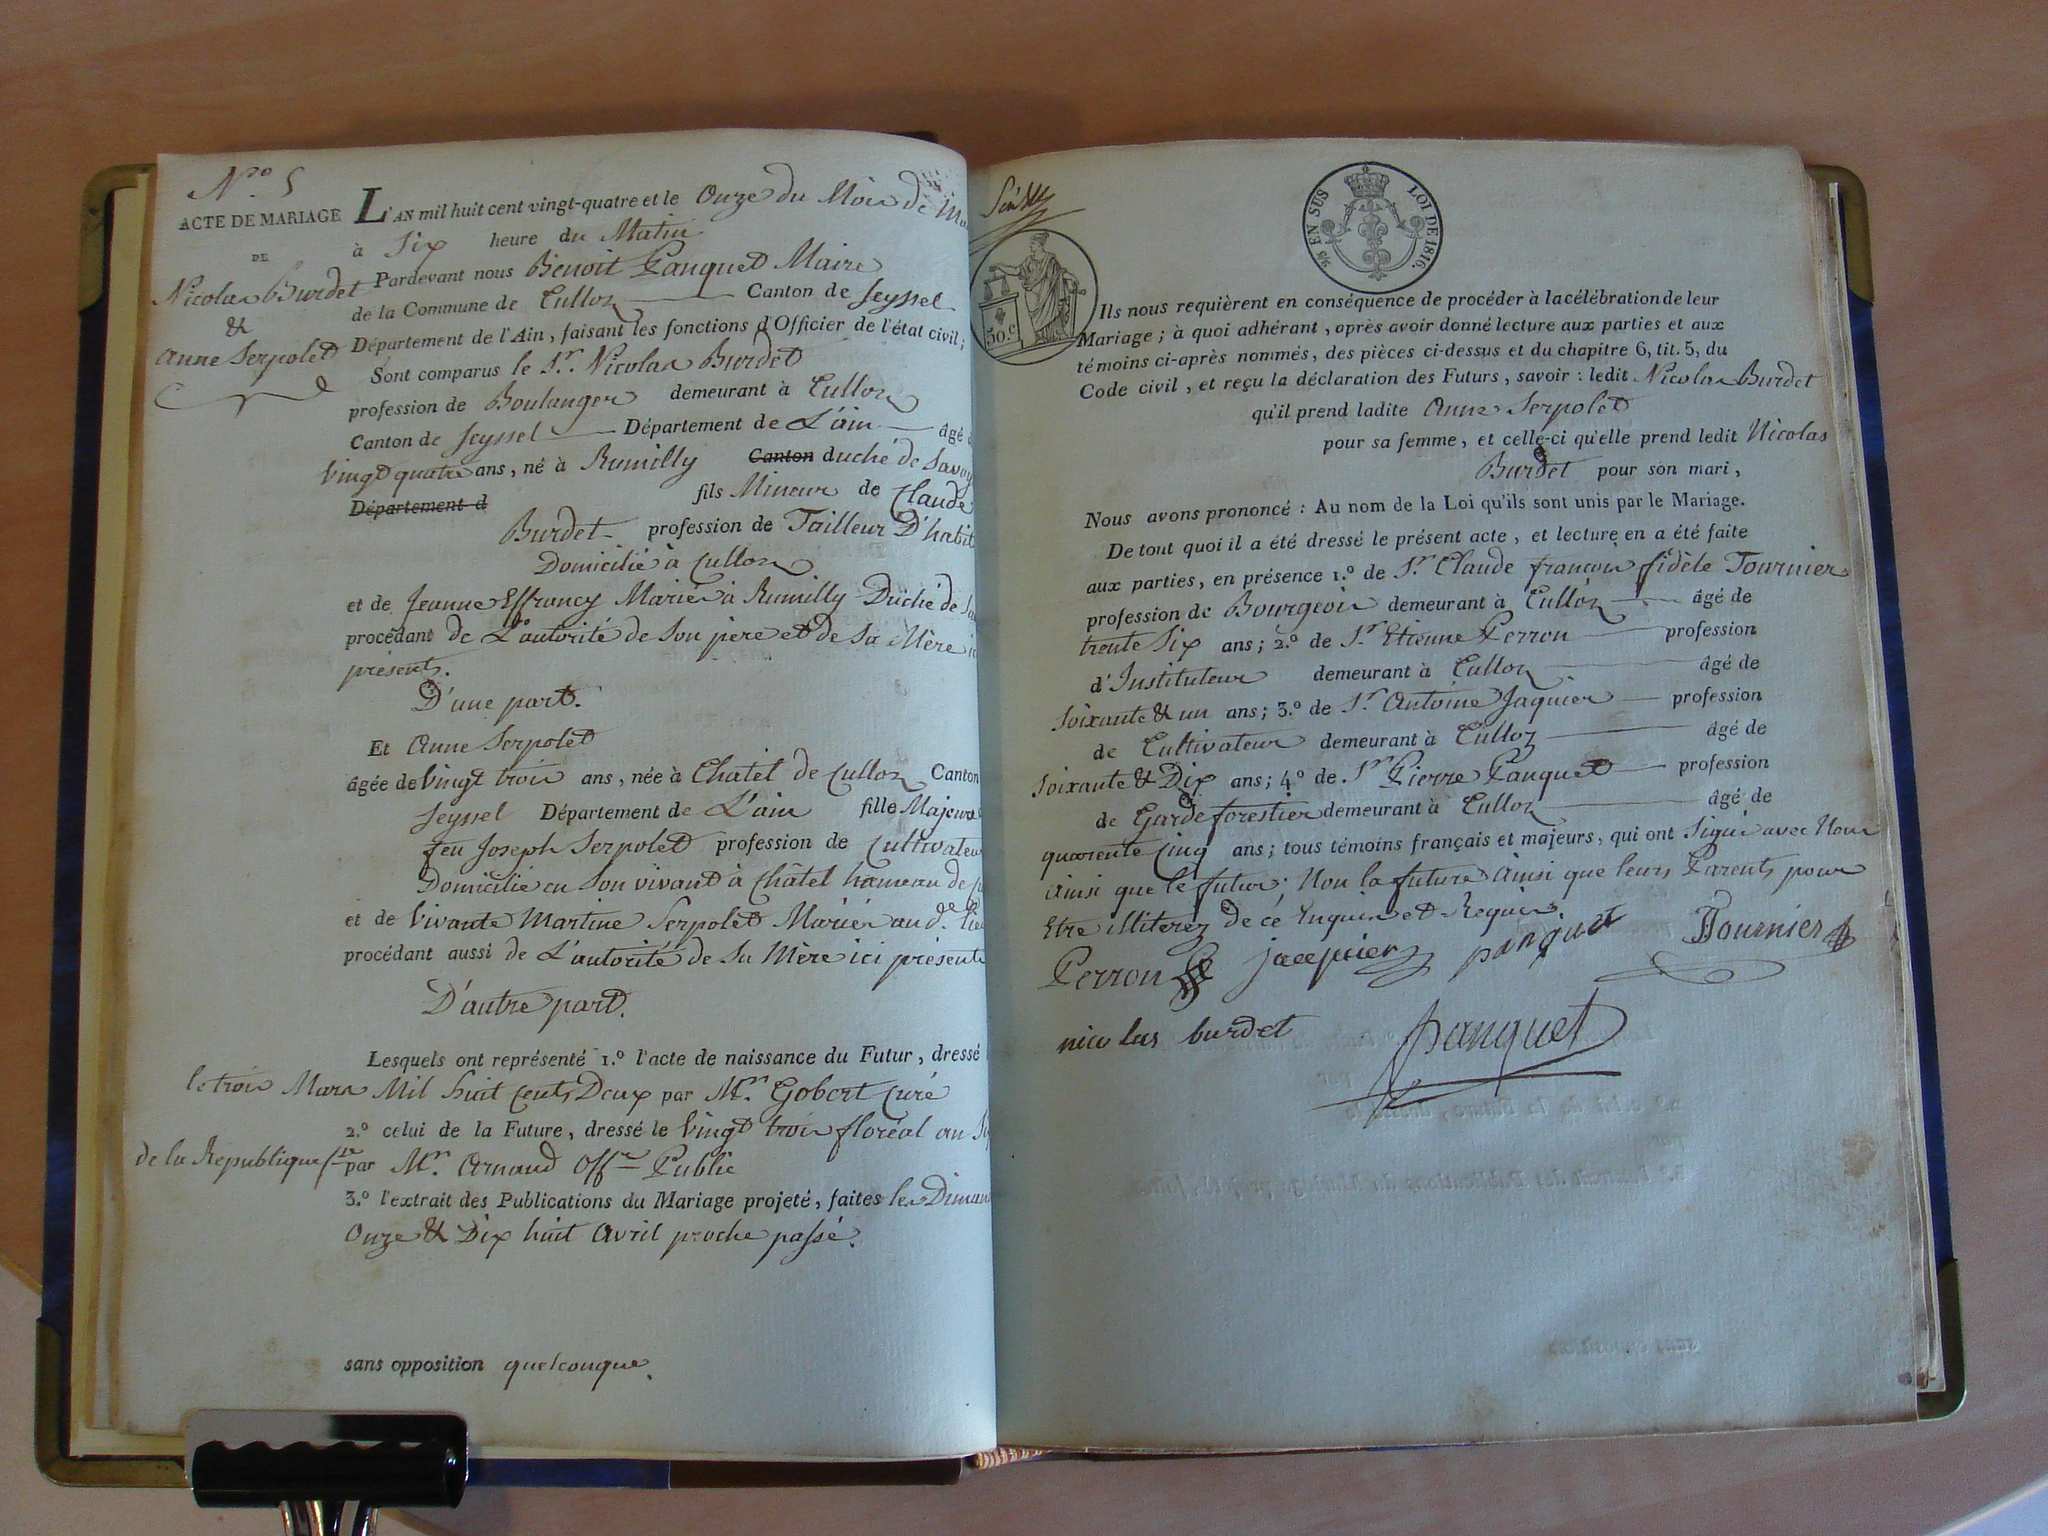 N.o 5
ACTE DE MARIAGE
DE
Nicolas Burdet
&
Anne Serpolet
L'AN mil huit cent vingt-quatre et le Onze du Mois de
à Six heure du Matin
Pardevant nous Benoit Panquet Maire
de la Commune de Culloz Canton de Seyssel
Département de l'Ain, faisant les fonctions d'Officier de l'état civil;
Sont comparus le Sr. Nicolas Burdet
profession de Boulanger demeurant à Culloz
Canton de Seyssel Département de L'ain âgé d
Vingt quatre ans, né à Rumilly Canton duché de Savoy
Département d fils Mineur de Claude
Burdet profession de Tailleur D'habit
Domicilié à Culloz
et de Jeanne Effrancy Mariés à Rumilly Duché de Sa
procédant de L'autorité de Son père et de Sa Mère ic
présents.
D'une part.
Et Anne Serpolet
âgée de Vingt trois ans, née à Chatel de Culloz Canton
Seyssel Département de L'ain fille Majeure
feu Joseph Serpolet profession de Cultivateu
Domicilié en Son vivant à Châtel hameau de Cu
et de Vivante Martine Serpolet Mariés au d. lieu
procédant aussi de L'autorité de Sa Mère ici présente
D'autre part.
Lesquels ont représenté 1.o l'acte de naissance du Futur, dressé
le trois Mars Mil huit Cents Deux par Mr. Gobert Curé
2.o celui de la Future, dressé le Vingt trois floréal an Si
de la Republique fse par Mr. Arnaud Offer Public
3.o l'extrait des Publications du Mariage projeté, faites les Diman
Onze & Dix huit Avril proche passé.
sans opposition quelconque.
98 EN SUS LOI DE 1816.
50.c
Ils nous requièrent en conséquence de procéder à la célébration de leur
Mariage; à quoi adhérant, oprès avoir donné lecture aux parties et aux
témoins ci-après nommés, des pièces ci-dessus et du chapitre 6, tit. 5, du
Code civil, et reçu la déclaration des Futurs, savoir: ledit Nicolas Burdet
qu'il prend ladite Anne Serpolet
pour sa femme, et celle-ci qu'elle prend ledit Nicolas
Burdet pour son mari,
Nous avons prononcé: Au nom de la Loi qu'ils sont unis par le Mariage.
De tout quoi il a été dressé le présent acte, et lecture en a été faite
aux parties, en présence 1.o de Sr. Claude françois fidèle Tournier
profession de Bourgeois demeurant à Culloz âgé de
trente Six ans; 2.o de Sr. Etienne Perron profession
d'Instituteur demeurant à Culloz âgé de
Soixante & un ans; 3.o de Sr. Antoine Jaquier profession
de Cultivateur demeurant à Culloz âgé de
Soixante & Dix ans; 4.o de Sr. Pierre Panquet profession
de Garde forestier demeurant à Culloz âgé de
quarente Cinq ans; tous témoins français et majeurs, qui ont Signé avec Nous
Ainsi que le futur. Non la future Ainsi que leurs Parents pour
Etre illiterez de ce Enquis et Requis.
Perron jacquier panquet Tournier
nicolas burdet panquet